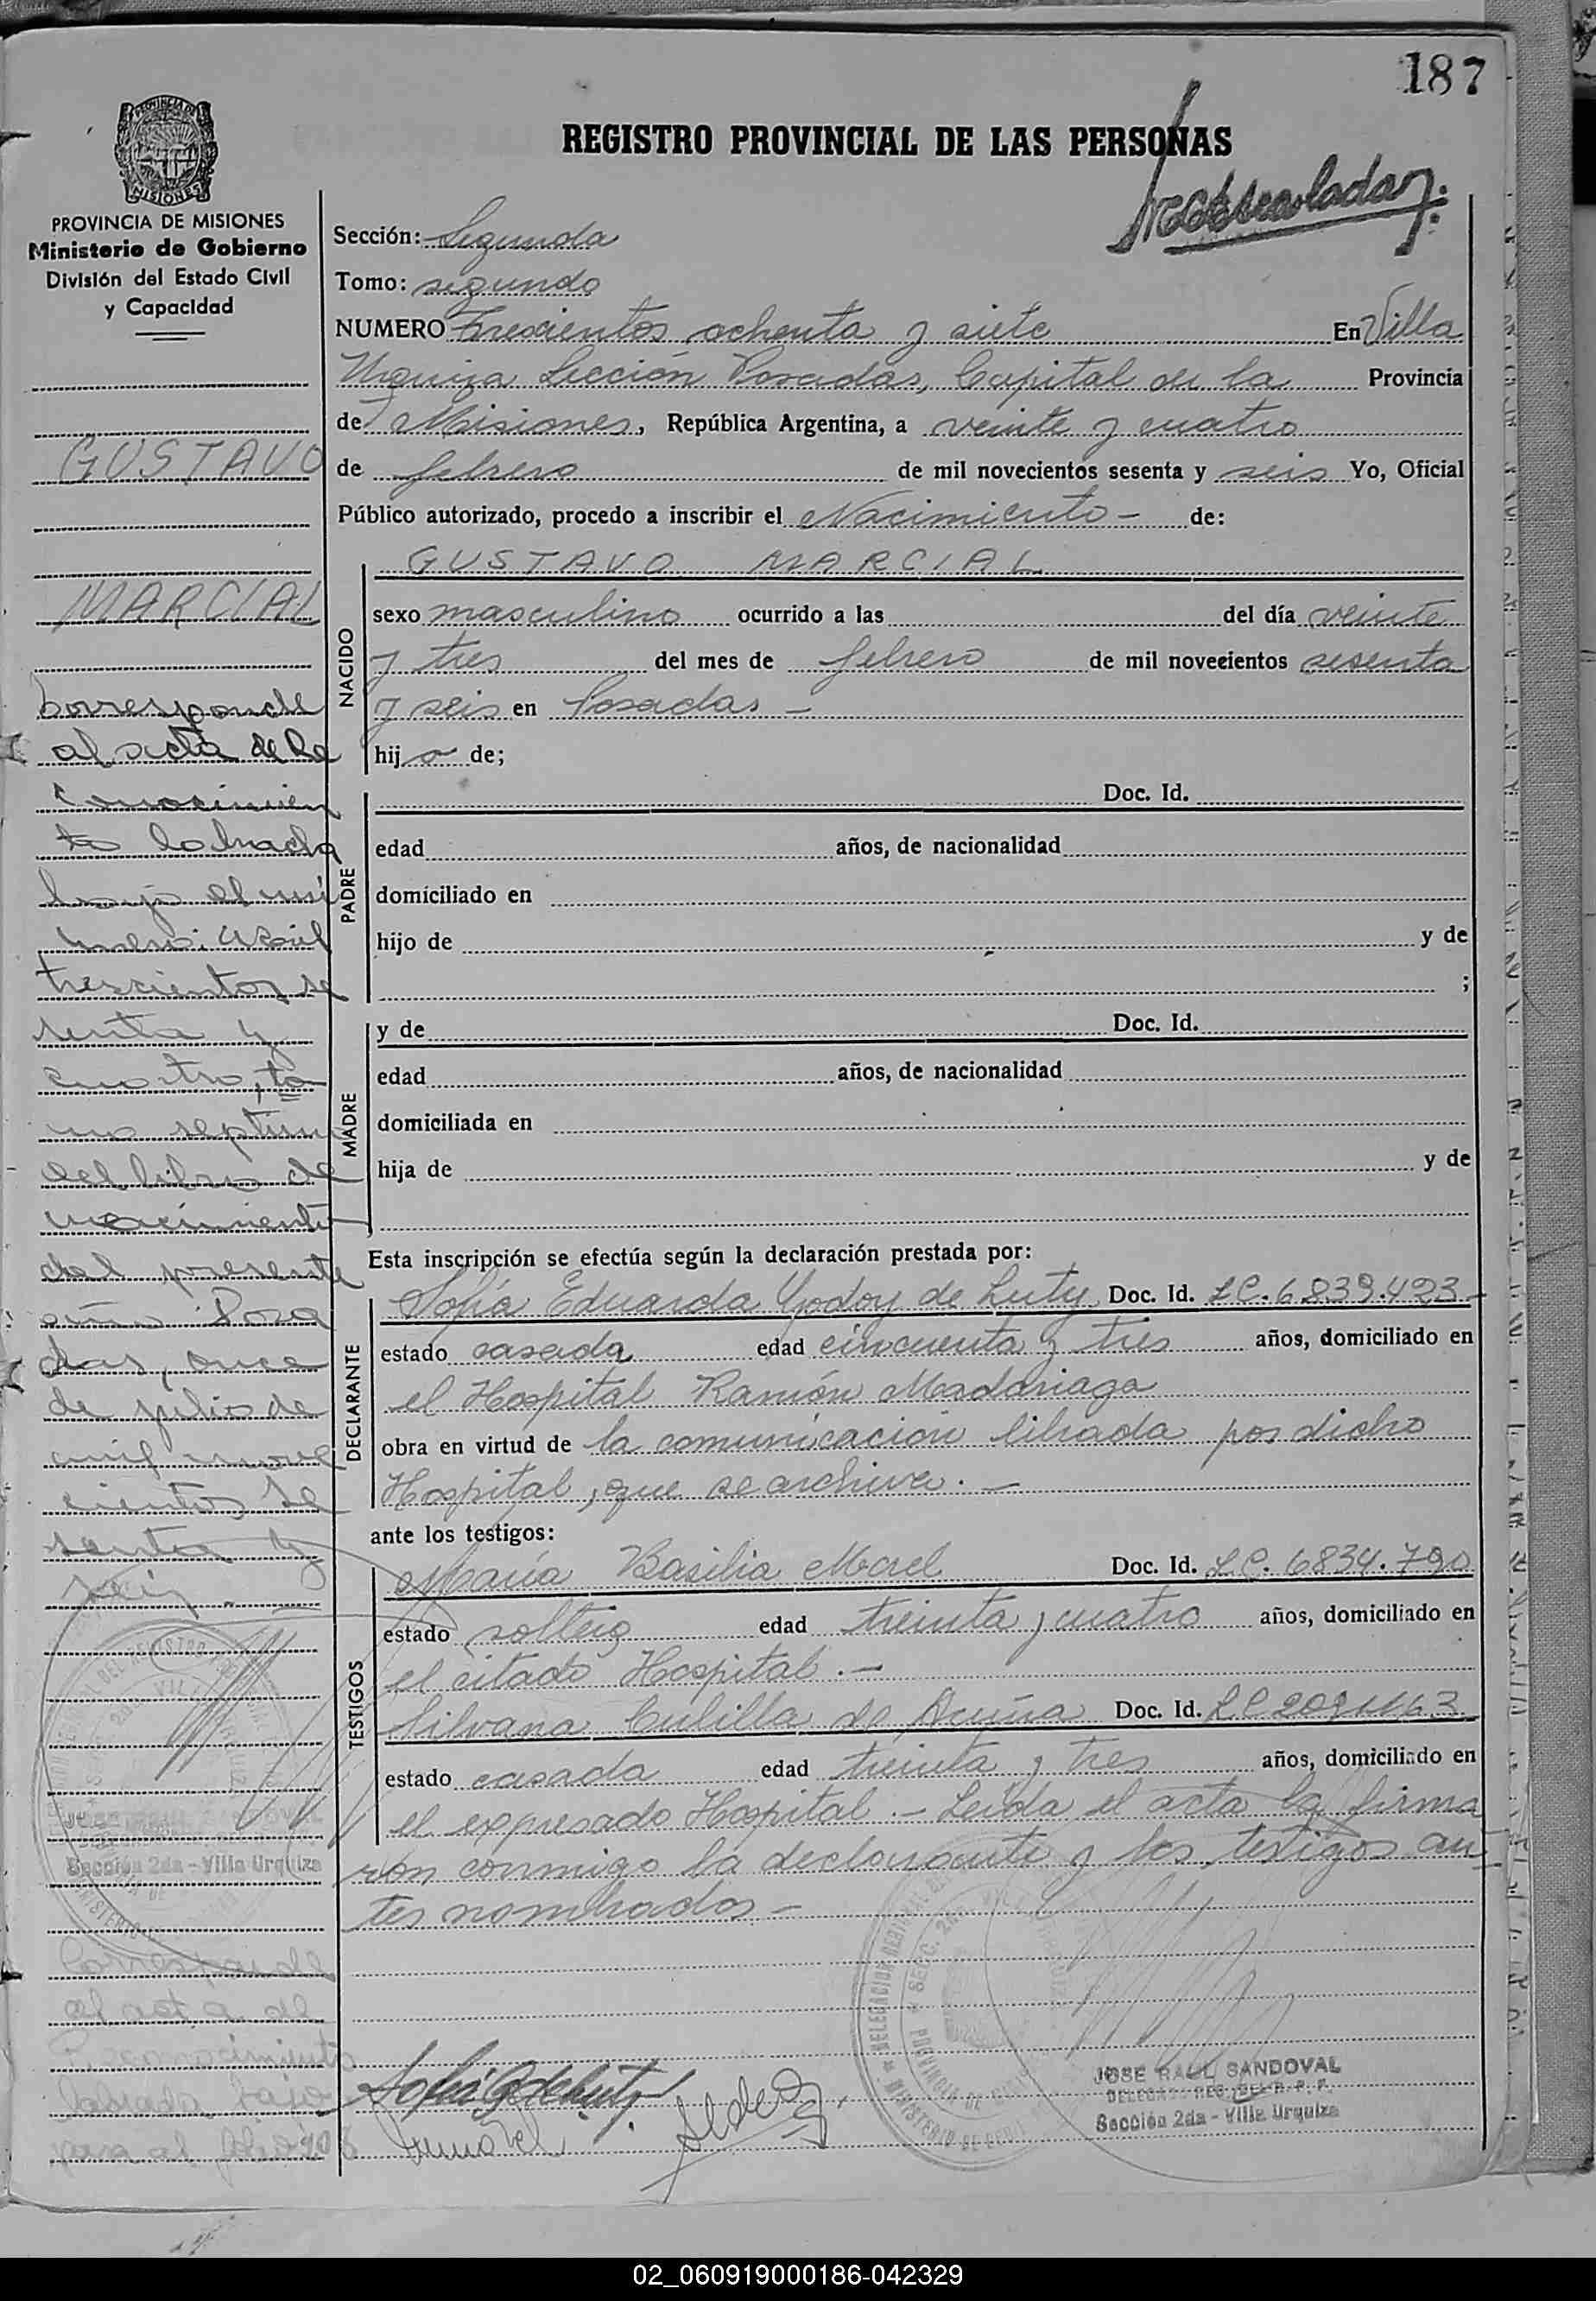 187
REGISTRO PROVINCIAL DE LAS PERSONAS
PROVINCIA DE MISIONES
Ministerio de Gobierno
División del Estado Civil
y Capacidad
GUSTAVO
MARCIAL
Corresponde
al acta de Re
conocimien
to labrada
bajo el nú
mero: mil
trescientos se
senta y
cuatro, to
mo septimo
del libro de
nacimiento
del presente
año Posa
das, once
de julio de
mil nove
cientos se
senta y
seis.-
JOSE RAUL SANDOVAL
Sección 2da - Villa Urquiza
Corresponde
al acta de
Reconocimiento
labrada bajo
Sección: Segunda
Tomo: segundo
NUMERO Trescientos ochenta y siete En Villa
Urquiza Sección Posadas, Capital de la Provincia
de Misiones, República Argentina, a veinte y cuatro
de febrero de mil novecientos sesenta y seis Yo, Oficial
Público autorizado, procedo a inscribir el Nacimiento - de:
GUSTAVO MARCIAL
NACIDO
sexo masculino ocurrido a las del día veinte
y tres del mes de febrero de mil novecientos sesenta
y seis en Posadas -
hijo de;
PADRE
Doc. Id.
edad años, de nacionalidad
domiciliado en
hijo de y de
;
MADRE
y de Doc. Id.
edad años, de nacionalidad
domiciliada en
hija de y de
Esta inscripción se efectúa según la declaración prestada por:
DECLARANTE
Sofía Eduarda Godoy de Luty Doc. Id. LC. 6839.423-
estado casada edad cincuenta y tres años, domiciliado en
el Hospital Ramón Madariaga
obra en virtud de la comunicación librada por dicho
Hospital, que se archiva. -
ante los testigos:
TESTIGOS
María Basilia Morel Doc. Id. LC. 6834.790
estado soltera edad treinta y cuatro años, domiciliado en
el citado Hospital.-
Silvana Culilla de Acuña Doc. Id. LC
estado casada edad treinta y tres años, domiciliado en
el expresado Hospital.- Leída el acta la firma
ron conmigo la declarante y los testigos an-
tes nombrados -
JOSE RAUL SANDOVAL
Sección 2da - Villa Urquiza
02_060919000186-042329